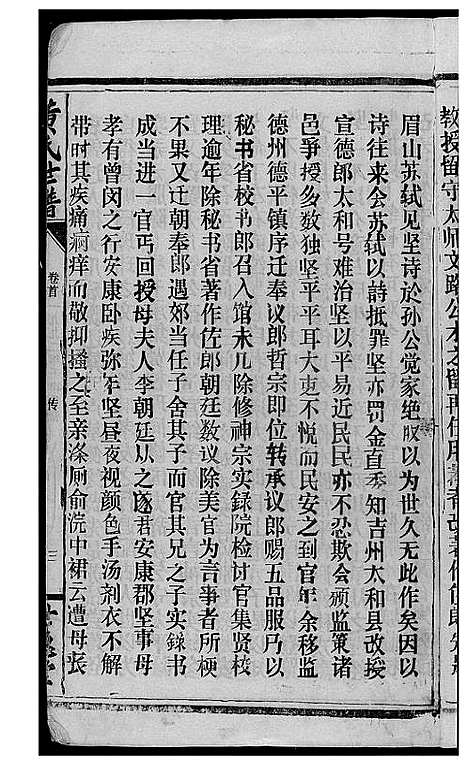 教授留守太师文潞公
眉山苏轼见坚诗於孙公觉家绝叹以为世久无此作矣因以
诗往来会苏轼以詩抵罪坚亦罚金直季知吉州太和县改授
宣德郎太和号难治坚以平易近民民亦不忍欺会颁监策诸
邑爭授多数独坚平平耳大吏不悦而民安之到官年余移监
德州德平镇序迁奉议郎哲宗即位转承议郎赐五品服乃以
秘书省校书郎召入馆未几除修神宗实録院检讨官集贤校
理逾年除秘书省著作佐郎朝廷数议除美官为言爭者所梗
不果又迁朝奉郎遇郊当任子舍其子而官其兄之子实録书
成当进一官丐回授母夫人李朝廷从之遂君安康郡坚事母
孝有曾闵之行安康卧疾弥年坚昼夜视颜色手汤剂衣不解
带时其疾痛疴痒而敬抑搔之至亲涤厕俞浣中裙云遭母丧
黄氏世譜
卷首
传
三